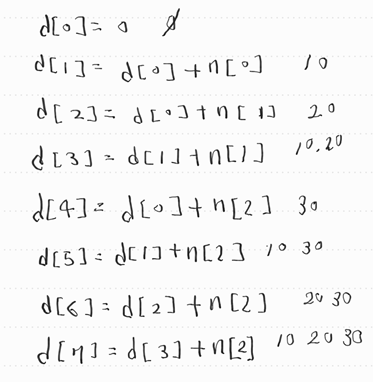 d[0]= 0 ∅
d[1]= d[0]+n[0] 10
d[2]= d[0]+n[1] 20
d[3]= d[1]+n[1] 10.20
d[4]= d[0]+n[2] 30
d[5]= d[1]+n[2] 10 30
d[6]= d[2]+n[2] 20 30
d[7]= d[3]+n[2] 10 20 30